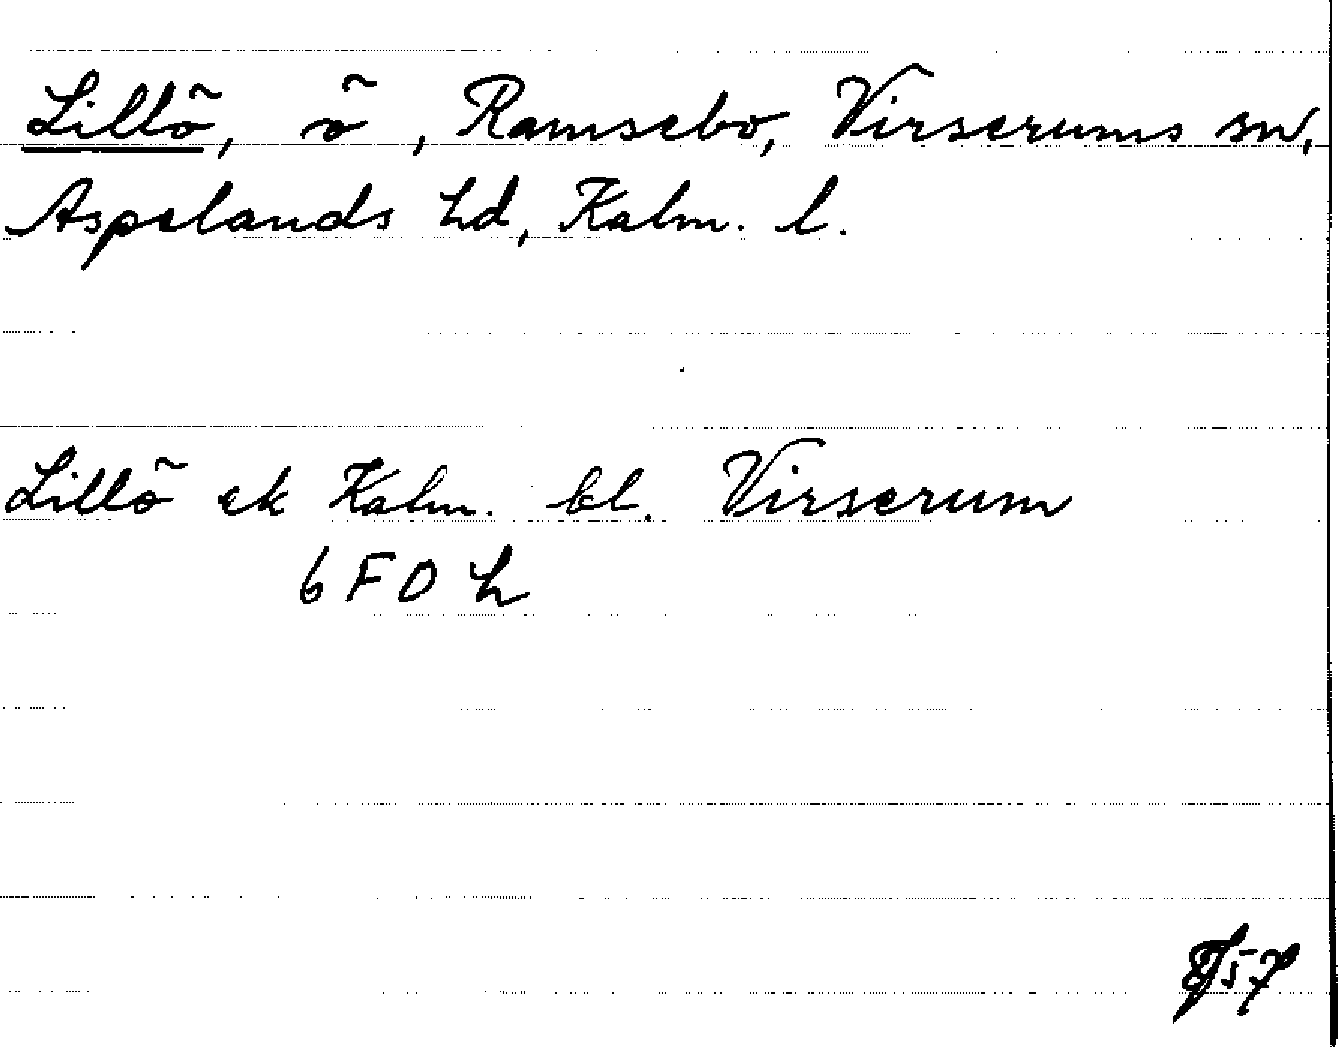 Lillö, ö, Ramsebo, Virserums sn,
Aspelands hd, Kalm. l.
Lillö ek Kalm. bl. Virserum
6 F O h
57